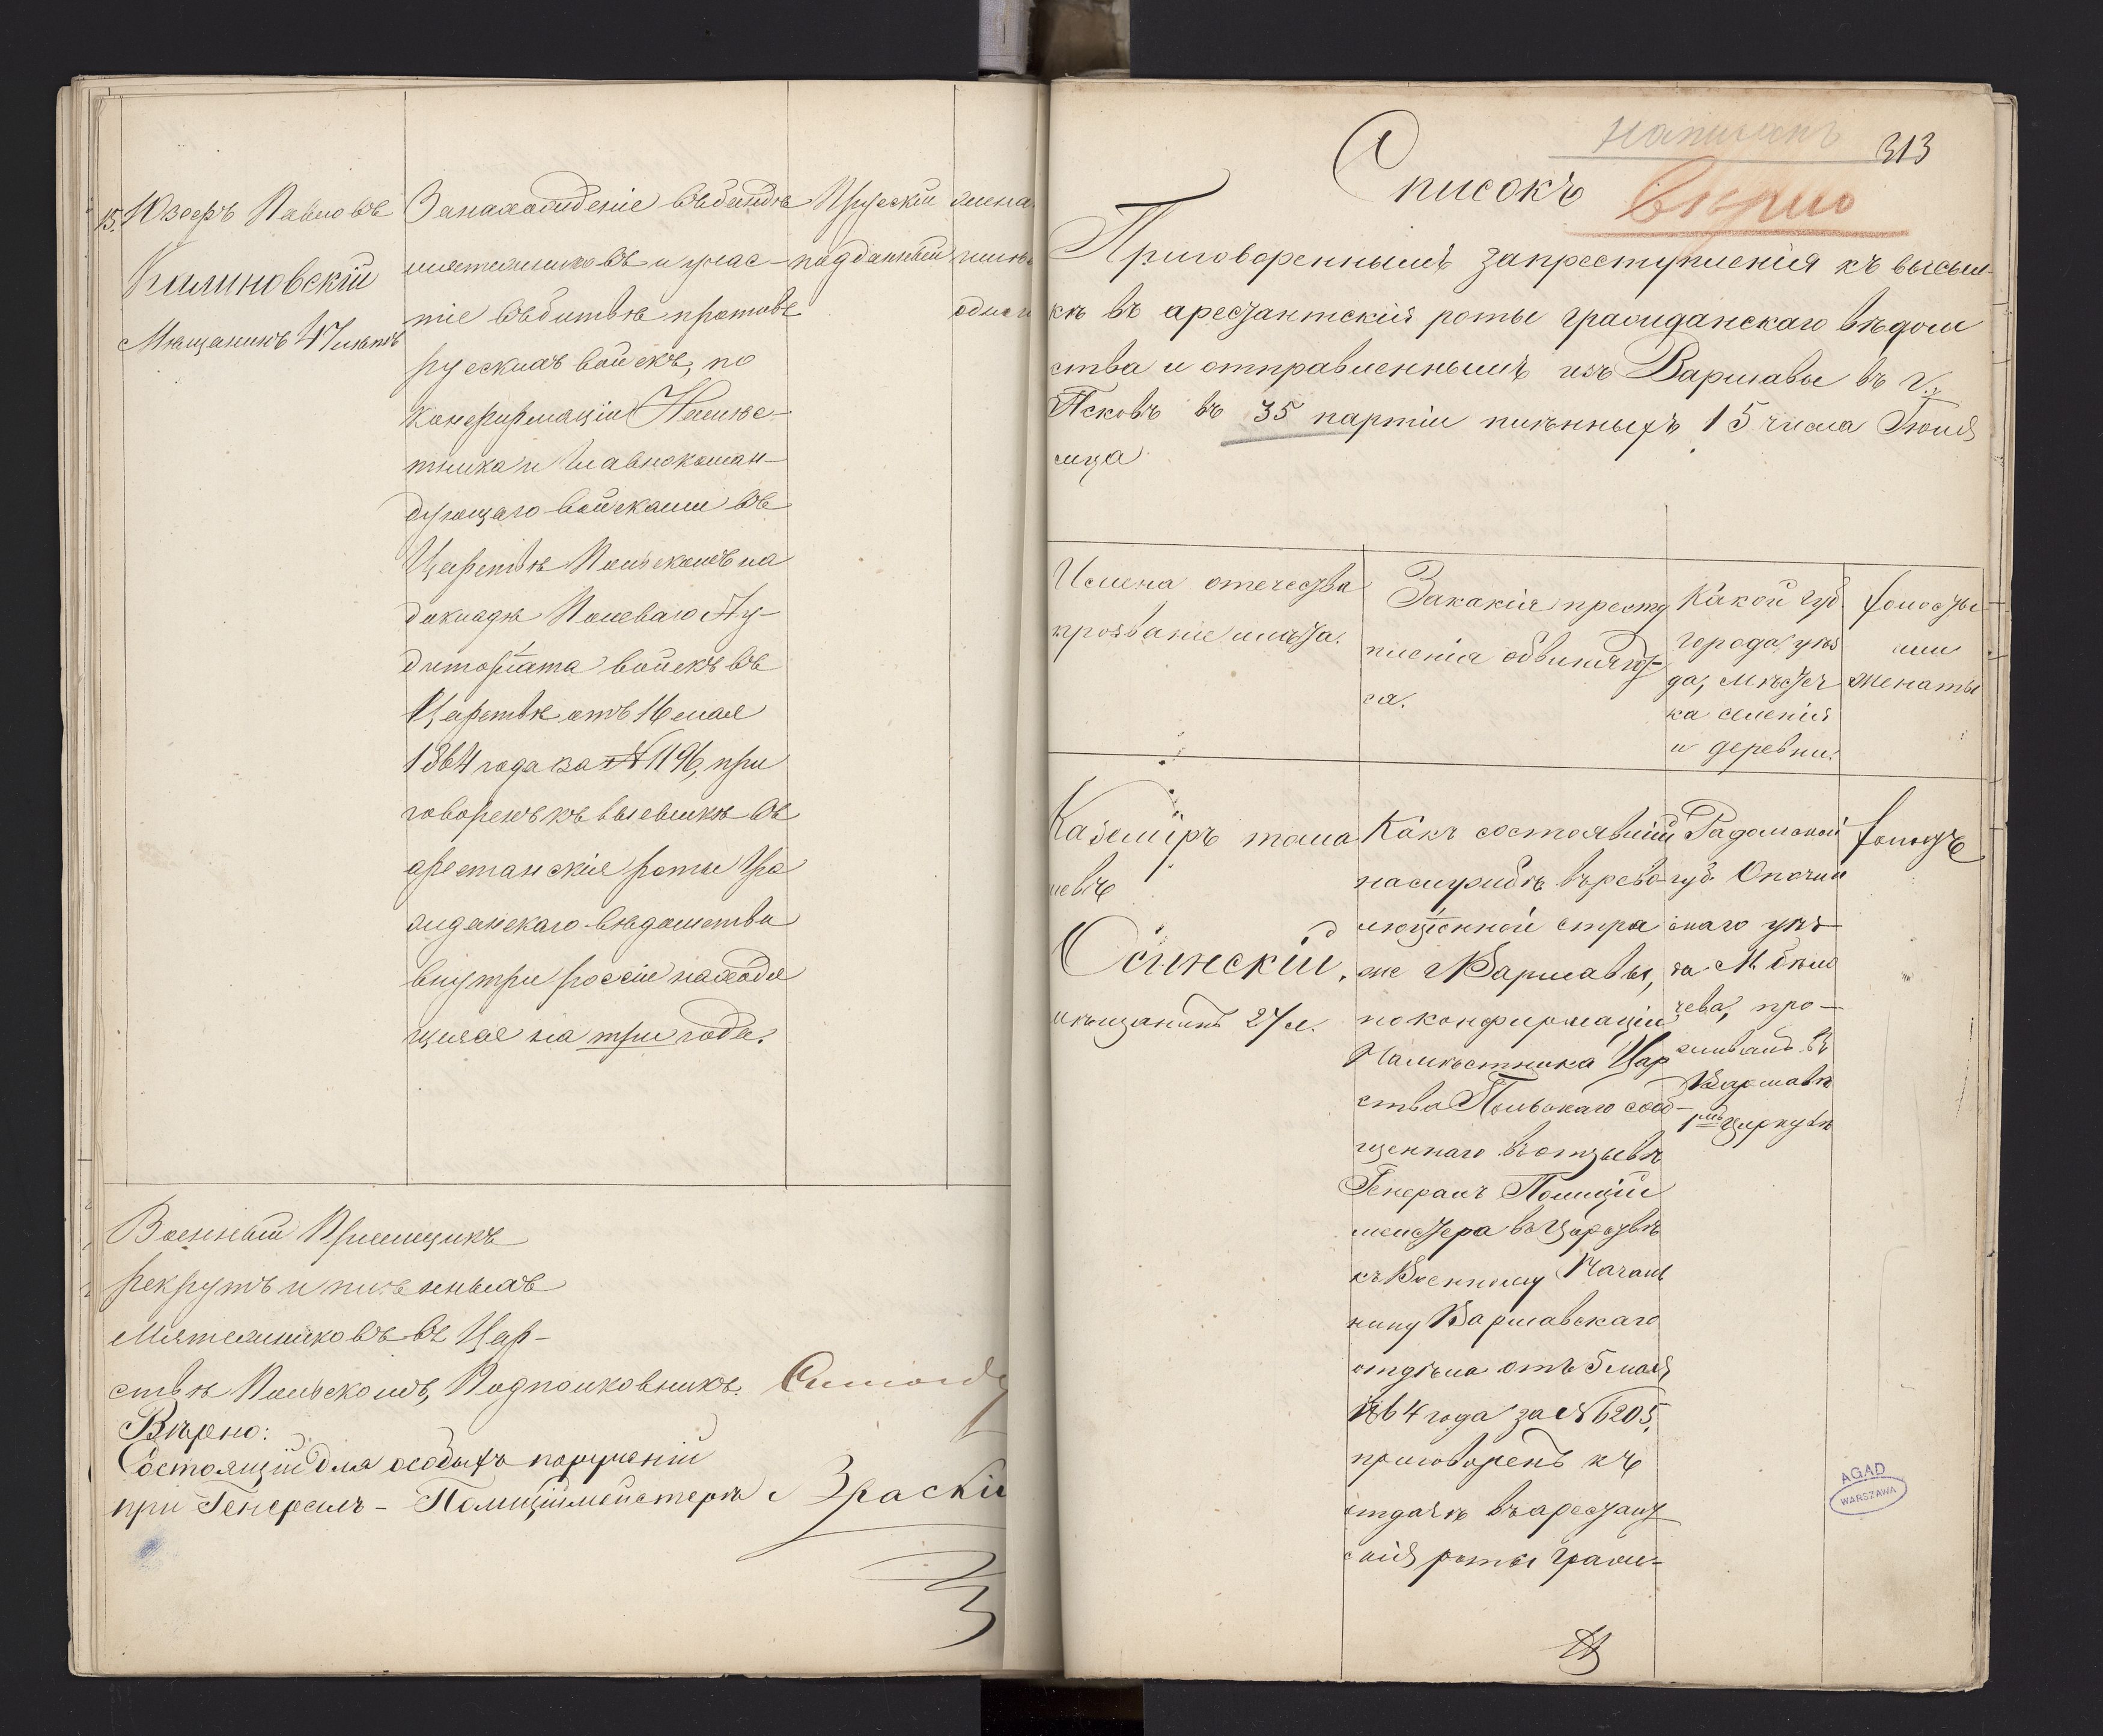 15. Юзефъ Павловъ
Калиновскій
Мѣщанинъ 47 лѣтъ
За нахожденіе въ бандѣ
мятежниковъ и учас-
тіе въ битвѣ противъ
рускихъ войскъ, по
конфирмаціи Намѣс-
тника и Главнокоман-
дующаго войсками въ
Царствѣ Польскомъ на
докладѣ Полеваго Ау-
диторіата войскъ въ
Царствѣ отъ 16 мая
1864 года за № 1196, при
говоренъ къ высылкѣ въ
арестанскія роты Гра
жданскаго вѣдомства
внутри россіи находя
щіяся на три года.
Прускій
подданный
Военный Пріемщикъ
рекрутъ и плѣнныхъ
Мятежниковъ въ Цар-
ствѣ Польскомъ, Подполковникъ
Вѣрно:
Состоящій для особыхъ порученій
при Генералъ-Полиціймейстерѣ
написанъ
313
Списокъ
вѣрно
Приговореннымъ за преступленія къ высыл-
кѣ въ арестантскія роты гражданскаго вѣдом
ства и отправленнымъ изъ Варшавы въ г.
Псковъ въ 35 партіи плѣнныхъ 15 числа Іюня
мца
Имена отечества
прозваніе и лѣта.
За какія престу
пленія обвиняют-
ся.
Какой губ
города, уѣз
да, мѣстеч
ка селенія
и деревни.
холосты
или
женаты
Каземіръ тома
шевъ
Осинскій,
мѣщанинъ 27 л.
Какъ состоявшій
на службѣ въ рево
люціонной стра
же г. Варшавы,
по конфирмаціи
Намѣстника Цар
ства Польскаго сооб-
щеннаго въ отзывѣ
Генералъ Полиціи
мейстера въ Царствѣ
къ Военному Началь
нику Варшавскаго
отдѣла отъ 5 мая
1864 года за № 6205,
приговоренъ къ
отдачѣ въ арестант
скія роты граж-
Радомской
губ. Опочин
скаго уѣз
да М. Бѣла
чева, про-
живалъ въ
Варшавѣ
1мъ циркулѣ
холостъ
AGAD
WARSZAWA